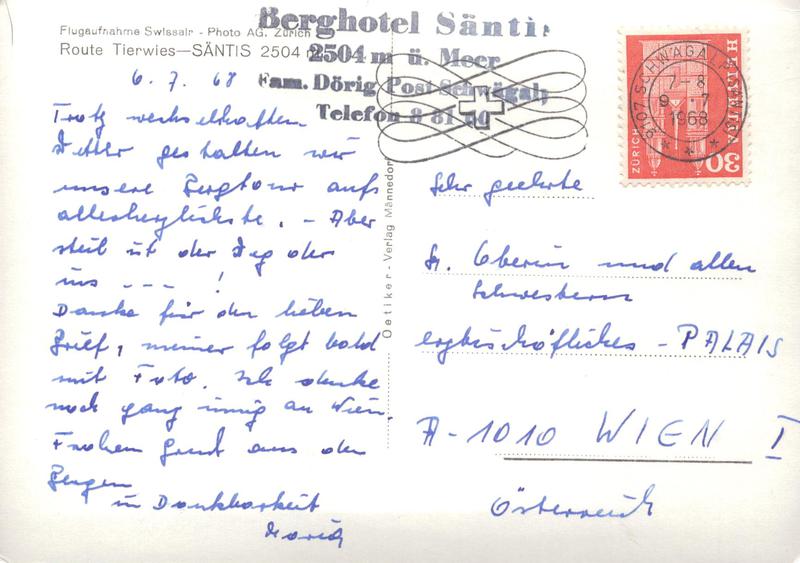 Flugaufnahme Swissair - Photo AG. Zürich
Route Tierwies—SÄNTIS 2504 m
Berghotel Säntis
2504 m ü. Meer
Fam. Dörig Post Schwägalp
Telefon 8 81 60
9107 SCHWÄGALP (SÄNTIS)
7-8
9 7
1968
HELVETIA
ZÜRICH
30
6. 7. 68
Trotz wechselhaften
Wetter gestalten wir
unsere Bergtour aufs
allerherzlichste. - Aber
steil ist der Weg der
ins - - - !
Danke für den lieben
Brief, meiner folgt bald
mit Foto. Ich denke
noch ganz innig an Wien.
Frohen Gruß aus den
Bergen
in Dankbarkeit
Oetiker - Verlag Männedorf
Sehr geehrte
Fr. Oberin und allen
Schwestern
erzbischöfliches - PALAIS
A-1010 WIEN I
Österreich